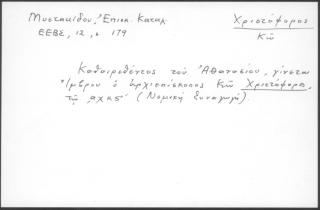 Μυστακίδου, Ἐπισκ. Καταλ. Χριστόφορος
ΕΕΒΣ, 12, 179 Κῶ
Καθαιρεθέντος τοῦ Ἀθανασίου, γίνεται
Ἴμβρου ὁ ἀρχιεπίσκοπος Κῶ Χριστόφορος,
τῷ ͵αχκϛ΄ (Νομικὴ Συναγωγή)